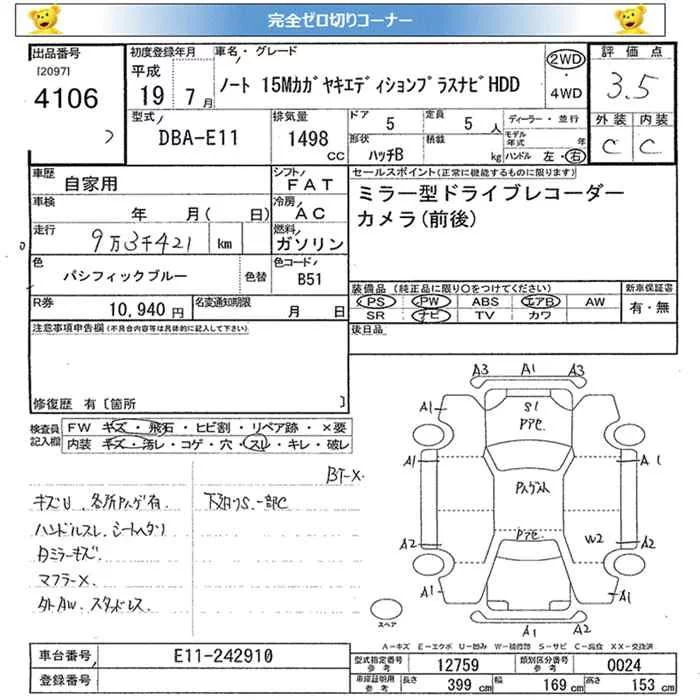 完全ゼロ切りコーナー
出品番号
[2097]
4106
初度登録年月
平成
19 7月
車名・グレード
ノート 15MカガヤキエディションプラスナビHDD
2WD
・
4WD
評価点
3.5
型式
DBA-E11
排気量
1498
CC
ドア
5
定員
5人
形状
ハッチB
積載
kg
ディーラー・並行
モデル年式
年
ハンドル 左・右
外装
C
内装
C
車歴
自家用
シフト
FAT
車検
年 月( 日)
冷房
AC
走行
9万3千421 km
燃料
ガソリン
色
パシフィックブルー
色替
色コード
B51
R券
10,940円
名変通知期限
月 日
セールスポイント(正常に機能するものに限ります)
ミラー型ドライブレコーダー
カメラ(前後)
装備品(純正品に限り○をつけてください)
PS PW ABS エアB AW
SR ナビ TV カワ
新車保証書
有・無
後日品
注意事項申告欄(不具合内容等は具体的に記入して下さい)
修復歴 有〔箇所 〕
検査員記入欄
FW キズ・飛石・ヒビ割・リペア跡・×要
内装 キズ・汚レ・コゲ・穴・スレ・キレ・破レ
BT-X
キズU、各所Pハゲ有
下廻りS、一部C
ハンドルスレ、シートヘタリ
ミラーキズ
マフラーX
外AW、スタッドレス
A3 A1 A3
A1
S1
Pアセ
A1
A1
Pハゲスレ
Pアセ
W2
A2
A2
A1
A1
A1 A2
スペア
A−キズ E−エクボ U−凹み W−補修跡 S−サビ C−腐食 XX−交換済
車台番号
E11-242910
登録番号
型式指定番号
参考
12759
類別区分番号
参考
0024
車庫証明用
参考
長さ
399 cm
幅
169 cm
高さ
153 cm